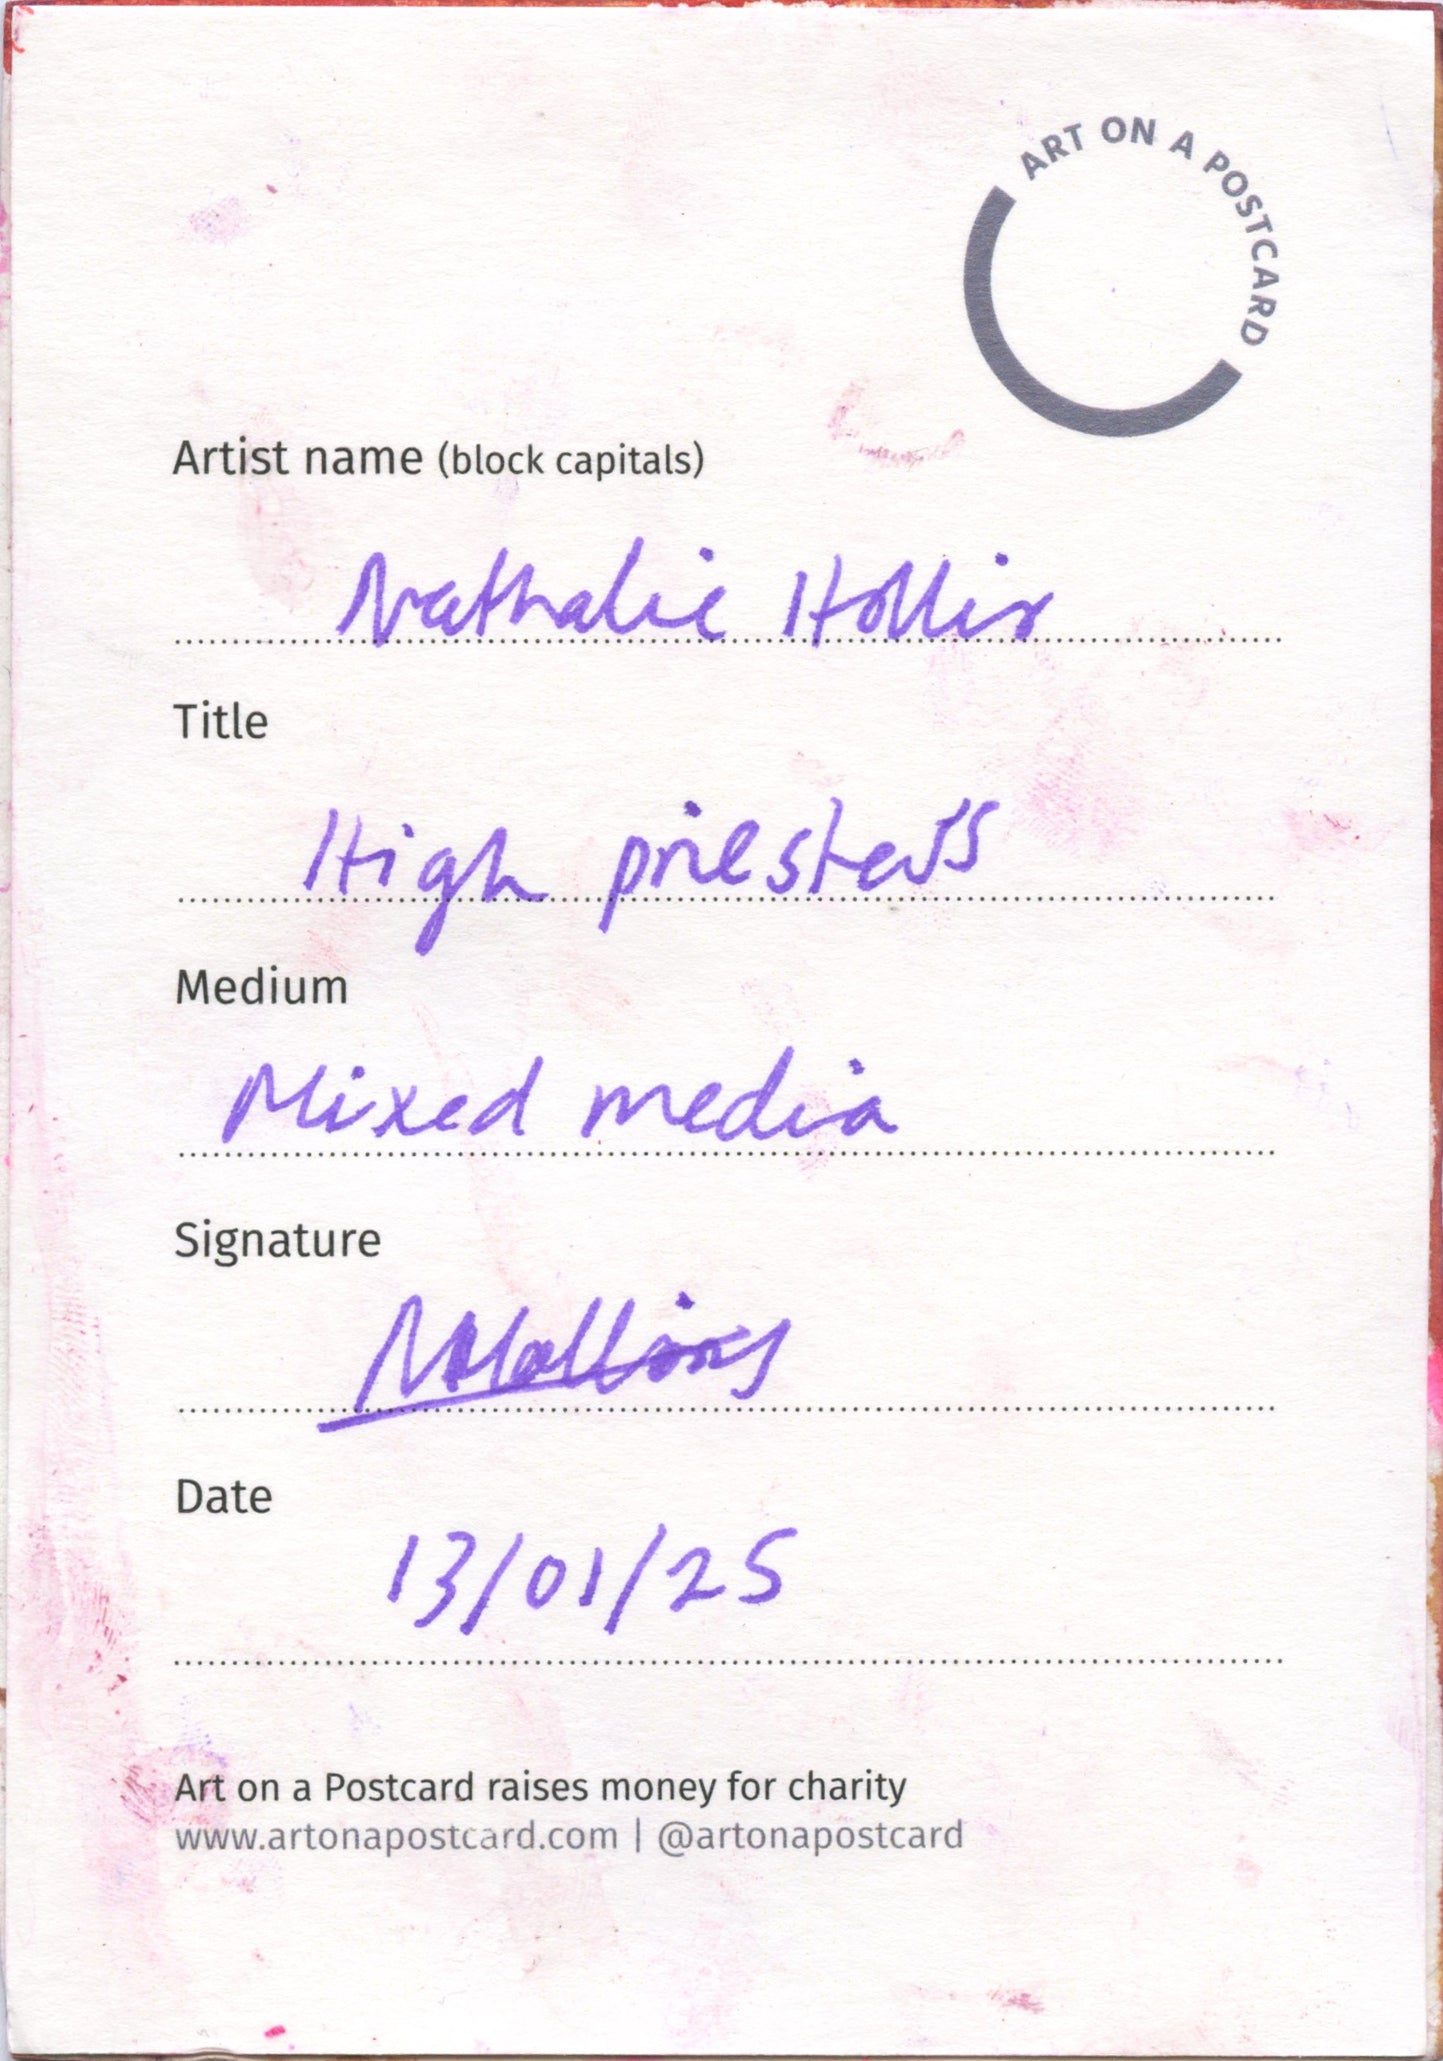 ART ON A POSTCARD
Artist name (block capitals)
Nathalie Hollis
Title
High priestess
Medium
Mixed media
Signature
Date
13/01/25
Art on a Postcard raises money for charity
www.artonapostcard.com | @artonapostcard